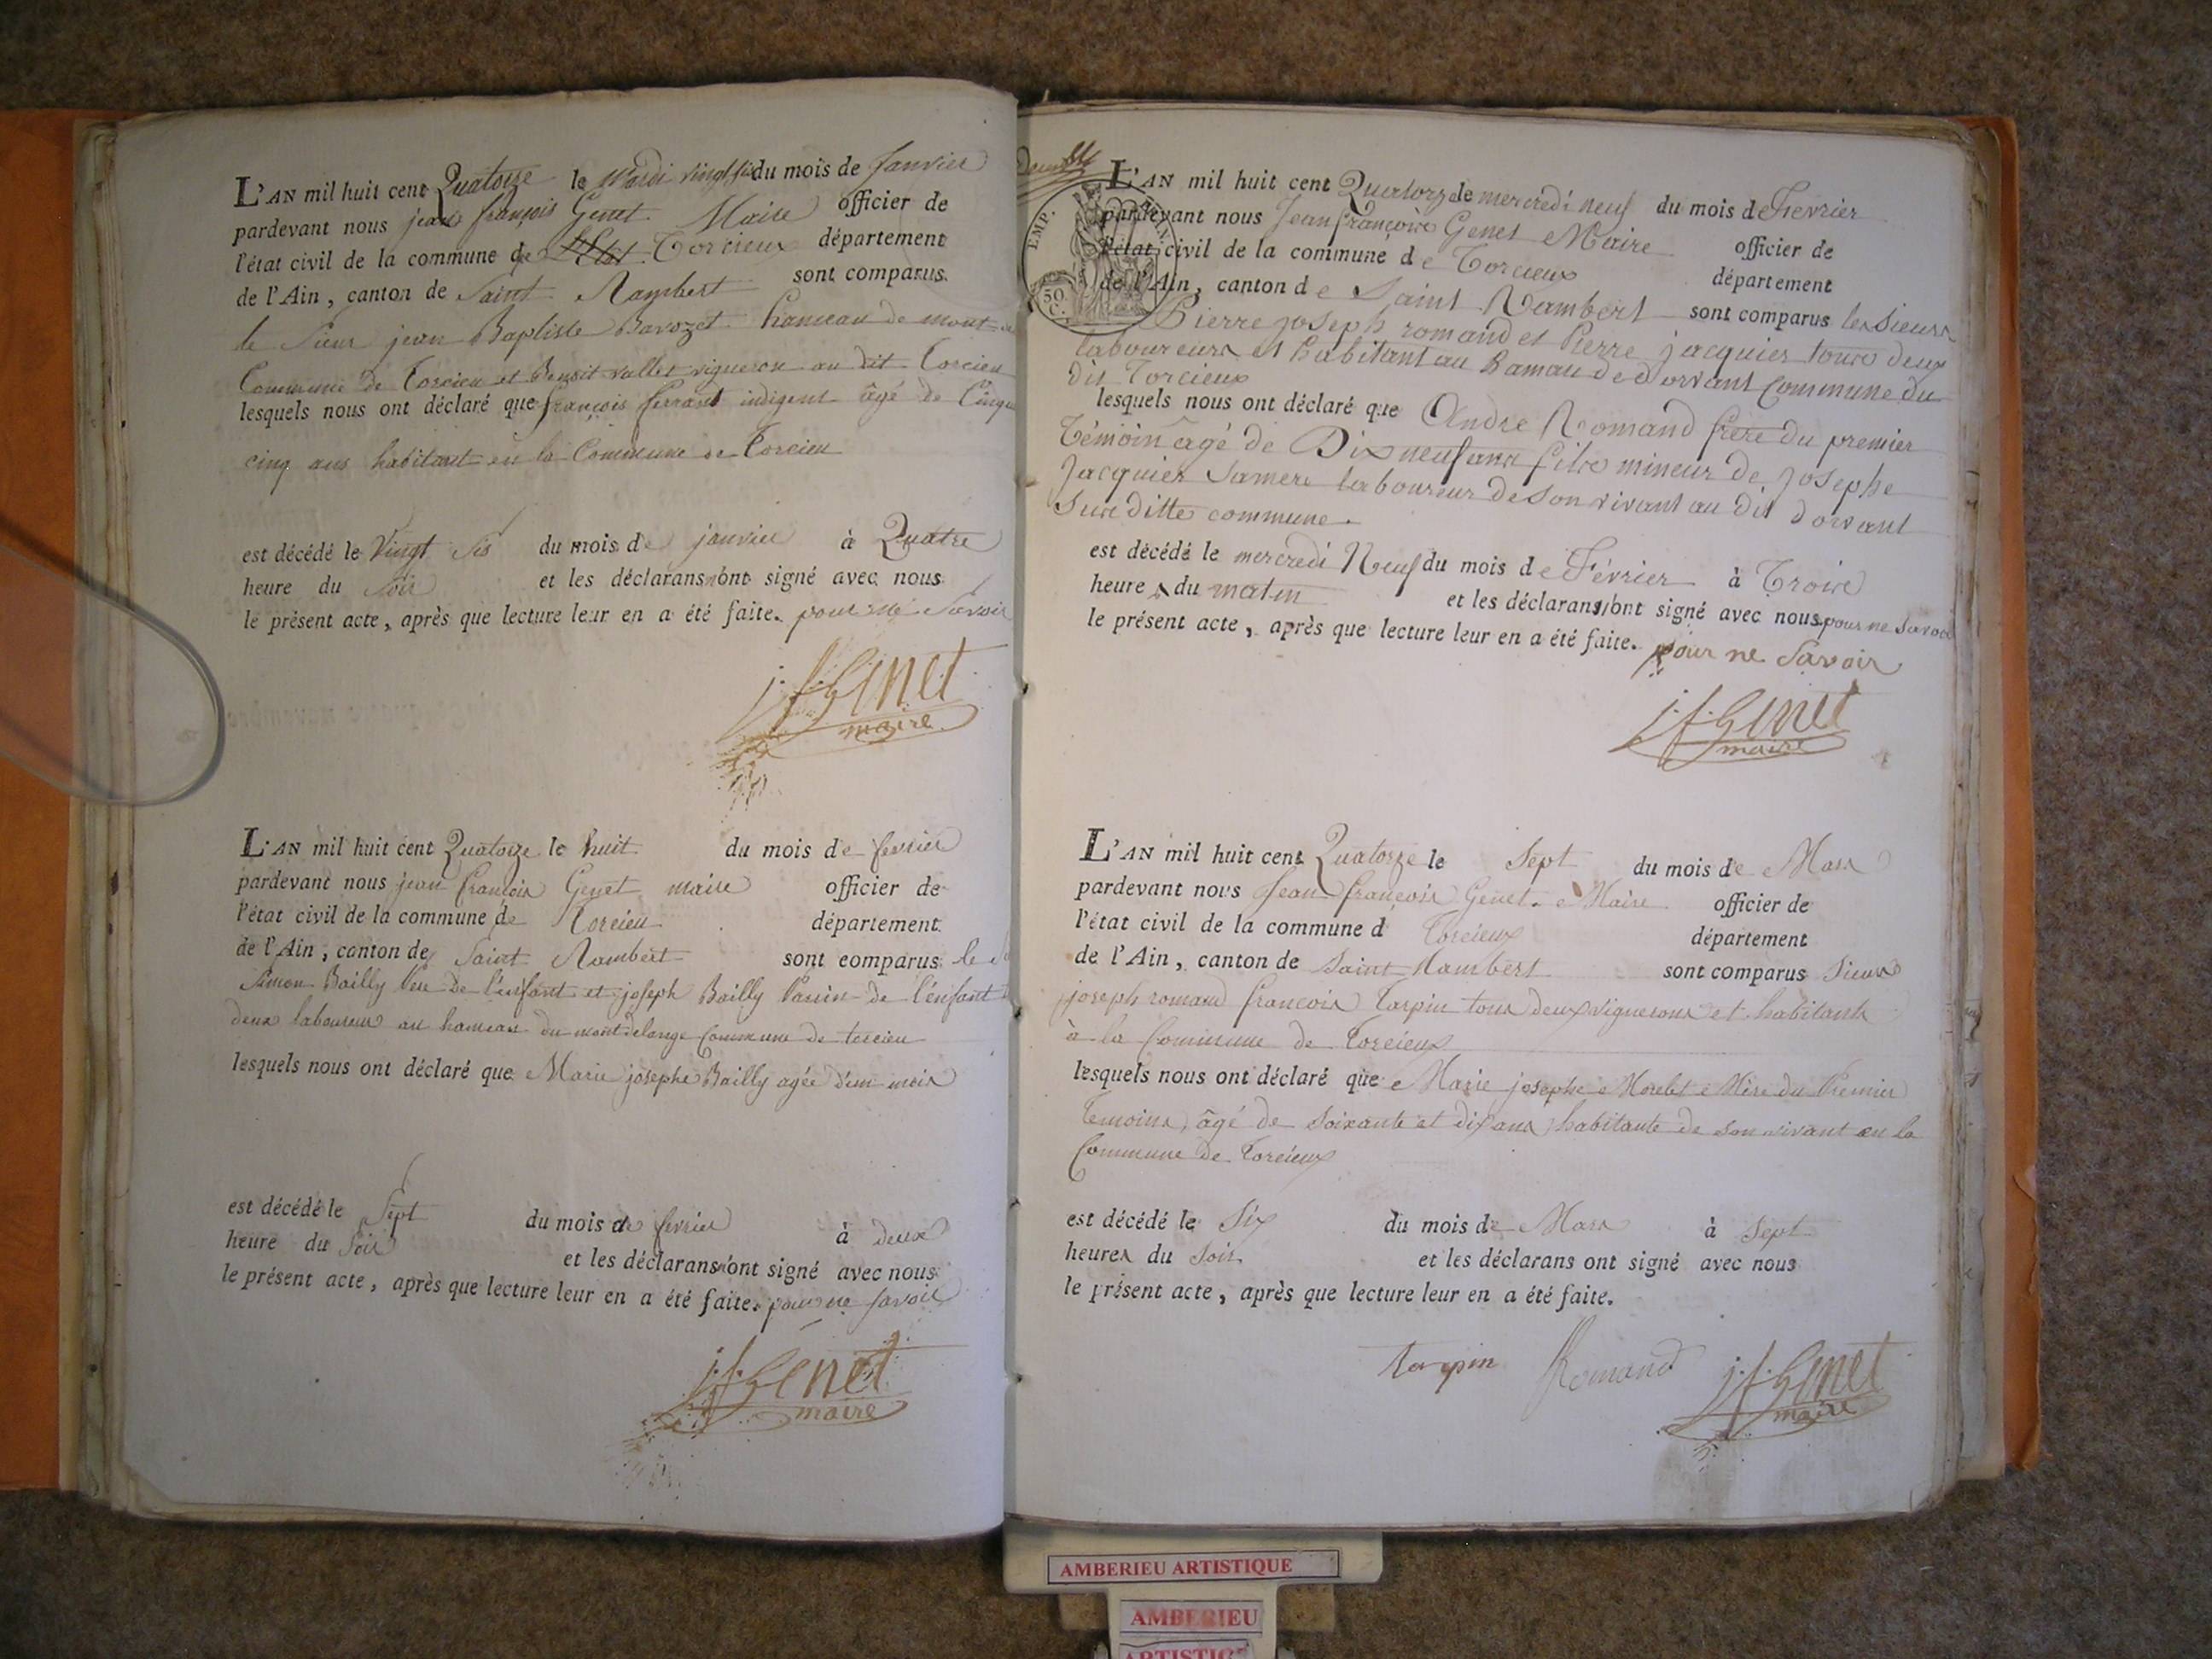 L'AN mil huit cent Quatorze le Mardi vingt six du mois de Janvier
pardevant nous jean françois Genet Maire officier de
l'état civil de la commune de Torcieux département
de l'Ain, canton de Saint Rambert sont comparus
le Sieur jean Baptiste Bavozet hameau de mont
Commune de Torcieu et Benoit vallet vigneron au dit Torcieu
lesquels nous ont déclaré que françois ferrand indigent âgé de Cinqu
cinq ans habitant en la Commune de Torcieu
est décédé le Vingt Six du mois de janvier à Quatre
heure du Soir et les déclarans n'ont signé avec nous
le présent acte, après que lecture leur en a été faite. pour ne Savoir
j. f. Genet
maire
L'AN mil huit cent Quatorze le huit du mois de fevrier
pardevant nous jean françois Genet maire officier de
l'état civil de la commune de Torcieu département
de l'Ain, canton de Saint Rambert sont comparus le
Simon Bailly Père de l'enfant et joseph Bailly Parrin de l'enfant
deux laboureur au hameau du montdelange Commune de torcieu
lesquels nous ont déclaré que Marie josephe Bailly agée d'un mois
est décédé le Sept du mois de fevrier à deux
heure du Soir et les déclarans n'ont signé avec nous
le présent acte, après que lecture leur en a été faite. pour ne Savoir
j. f. Genet
maire
EMP.
50
C.
L'AN mil huit cent Quatorze le mercredi neuf du mois de Fevrier
pardevant nous Jean françois Genet Maire officier de
l'état civil de la commune de Torcieux département
de l'Ain, canton de Saint Rambert sont comparus les Sieurs
Pierre joseph romand et Pierre jacquier tous deux
laboureurs et habitant au hamau de dorvant Commune du
dit Torcieux
lesquels nous ont déclaré que Andre Romand frere du premier
Témoin âgé de Dix neuf ans fils mineur de Josephe
Jacquier Samere laboureur de son vivant au dit dorvant
Sus ditte commune.
est décédé le mercredi Neuf du mois de Février à Trois
heures du matin et les déclarans n'ont signé avec nous pour ne Savoir
le présent acte, après que lecture leur en a été faite. pour ne Savoir
j. f. Genet
maire
L'AN mil huit cent Quatorze le Sept du mois de Mars
pardevant nous Jean françois Genet Maire officier de
l'état civil de la commune d Torcieux département
de l'Ain, canton de Saint Rambert sont comparus Sieurs
joseph romand françois Tarpin tous deux vignerons et habitants
à la Commune de Torcieux
lesquels nous ont déclaré que Marie josephe Morelet Mère du Premier
Temoins, âgé de Soixante et dix ans habitante de son vivant en la
Commune de Torcieux
est décédé le Six du mois de Mars à Sept
heures du Soir. et les déclarans ont signé avec nous
le présent acte, après que lecture leur en a été faite.
tarpin Romand j. f. Genet
maire
AMBERIEU ARTISTIQUE
AMBERIEU
ARTISTIQ